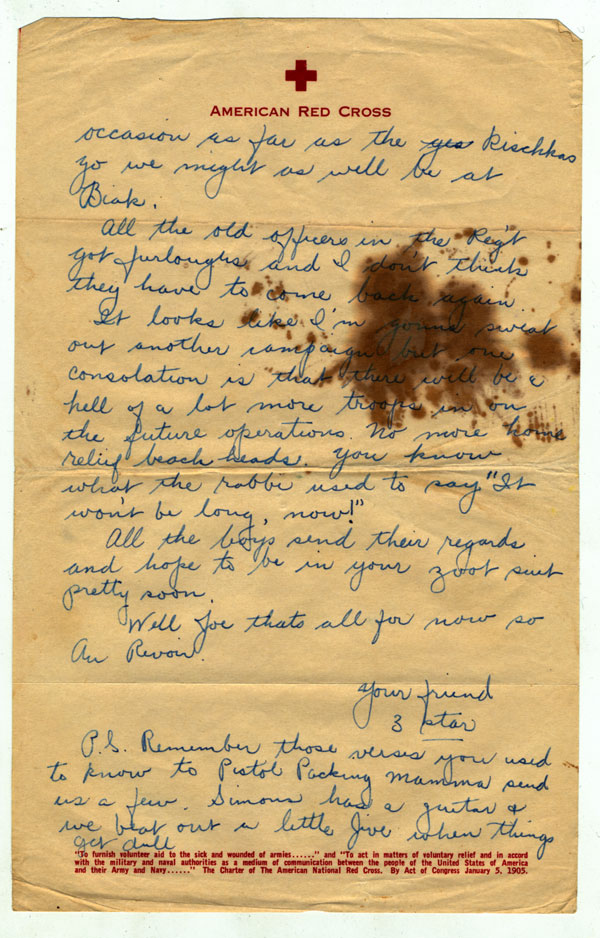 American Red Cross
occasion as far as the yes Rischkas
go we might as well be at
Biak.
All the old officers in the Reg't
got furloughs and I don't think
they have to come back again
It looks like I'm gonna sweat
out another campaign but one
consolation is that there will be a
hell of a lot more troops in on
the future operations. No more home
relief beach heads. You know
what the rabbi used to say "It
won't be long, now!"
All the boys send their regards
and hope to be in your zoot suit
pretty soon.
Well Joe thats all for now so
Au Revoir.
Your friend
3 star
P.S. Remember those verses you used
to know to Pistol Packing Mamma send
us a few. Simons has a guitar &
we beat out a little Jive when things
get dull
"To furnish volunteer aid to the sick and wounded of armies......" and "To act in matters of voluntary relief and in accord
with the military and naval authorities as a medium of communication between the people of the United States of America
and their Army and Navy......" The Charter of The American National Red Cross. By Act of Congress January 5, 1905.